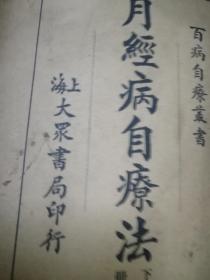 百病自療叢書
月經病自療法
下冊
上海大眾書局印行